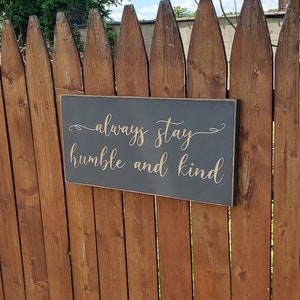 always stay
humble and kind